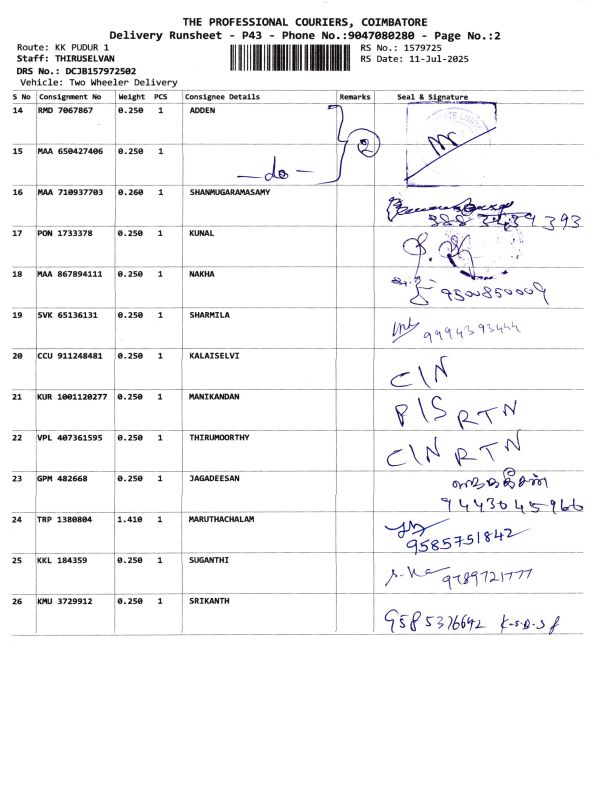 THE PROFESSIONAL COURIERS, COIMBATORE
Delivery Runsheet - P43 - Phone No.:9047080280 - Page No.:2
Route: KK PUDUR 1 RS No.: 1579725
Staff: THIRUSELVAN RS Date: 11-Jul-2025
DRS No.: DCJB157972502
Vehicle: Two Wheeler Delivery
S No Consignment No Weight PCS Consignee Details Remarks Seal & Signature
14 RMD 7067867 0.250 1 ADDEN
15 MAA 650427406 0.250 1 —do— 2
16 MAA 710937703 0.260 1 SHANMUGARAMASAMY
17 PON 1733378 0.250 1 KUNAL
18 MAA 867894111 0.250 1 NAKHA 9500850009
19 SVK 65136131 0.250 1 SHARMILA 9994393444
20 CCU 911248481 0.250 1 KALAISELVI C/N
21 KUR 1001120277 0.250 1 MANIKANDAN P/S RTN
22 VPL 407361595 0.250 1 THIRUMOORTHY C/N RTN
23 GPM 482668 0.250 1 JAGADEESAN ஜெகதீசன்
9443045966
24 TRP 1380804 1.410 1 MARUTHACHALAM
9585751842
25 KKL 184359 0.250 1 SUGANTHI 9789721777
26 KMU 3729912 0.250 1 SRIKANTH 9585376642